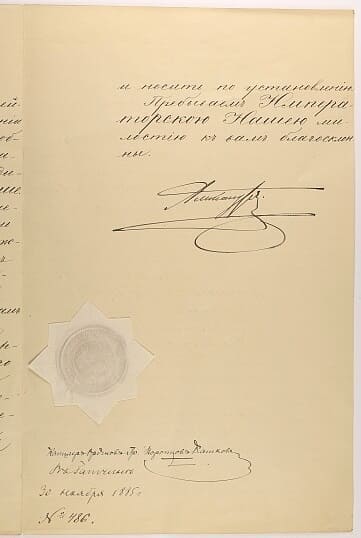 и носить по установленію.
Пребываемъ Импера
торскою Нашею ми
лостію къ вамъ благосклон
ны.
Александръ.
Канцлеръ Орденовъ Гр. Воронцовъ Дашковъ
Въ Гатчинѣ
30 ноября 1885 г.
№ 486.